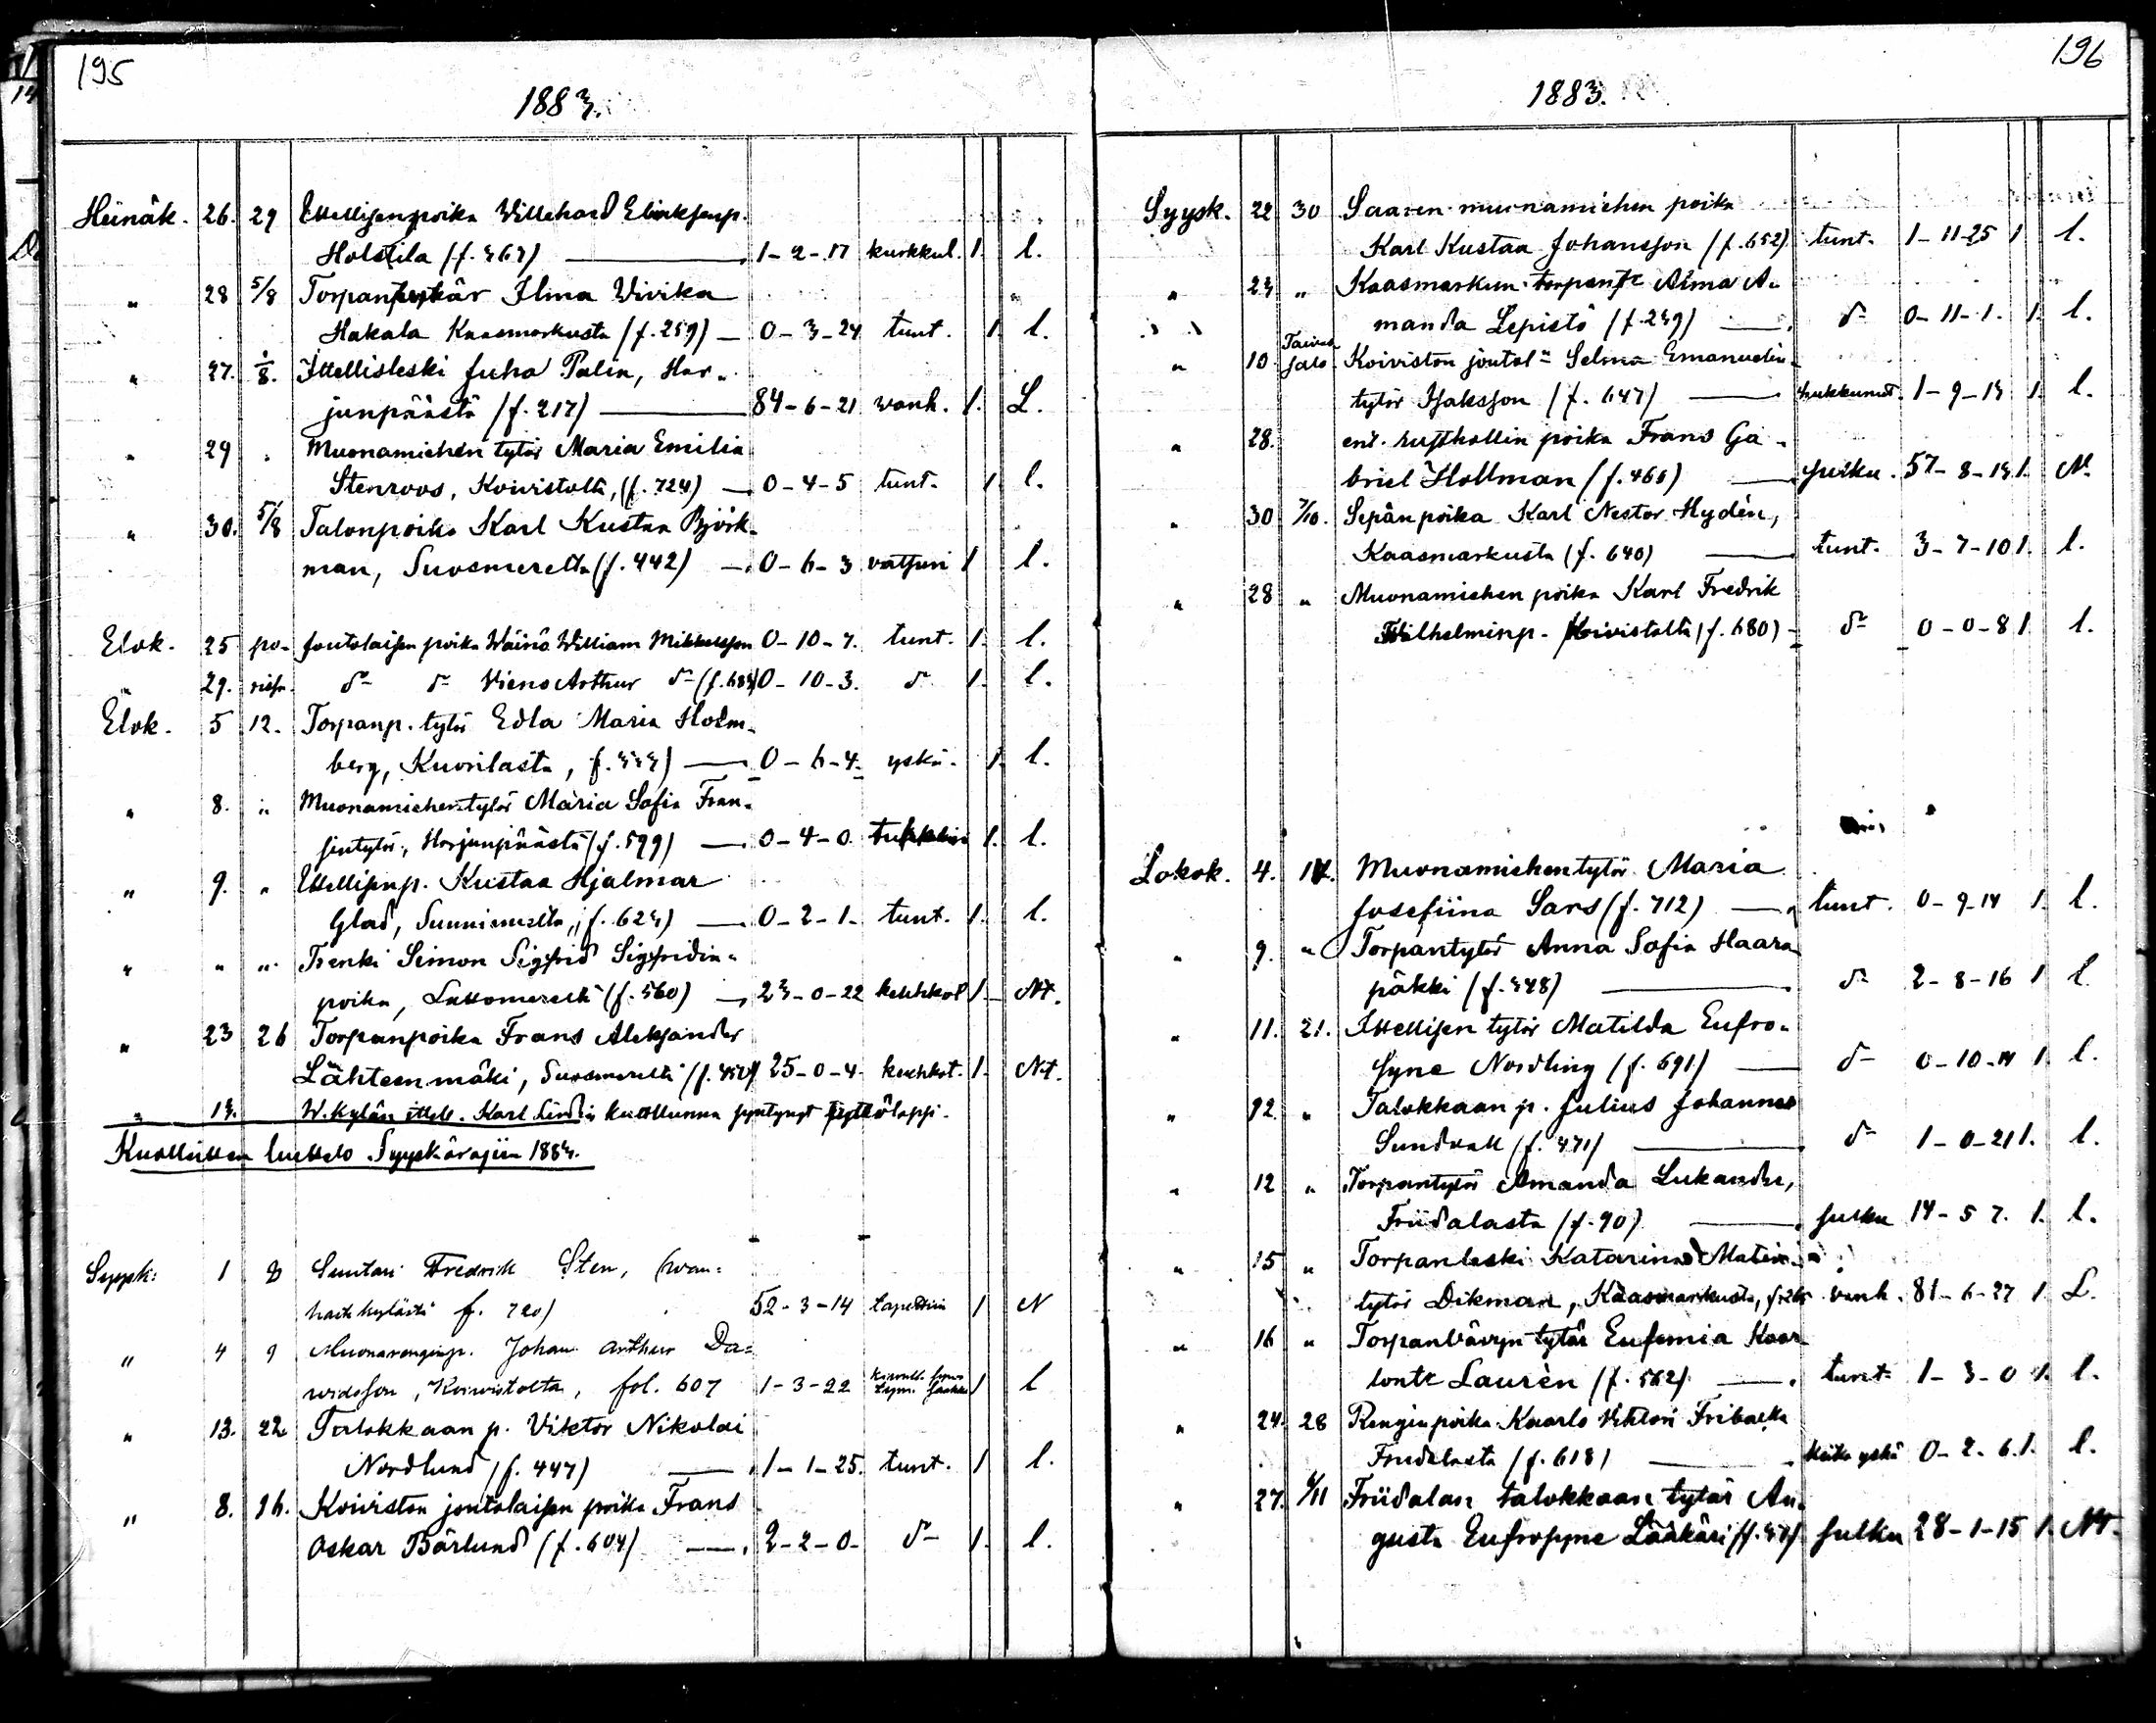 195
1883.
Heinäk. 26. 29 Ittellisenpoika Willehard
Holstila (f. 367) 1-2-17 kurkkul. 1. l.
" 28 5/8 Ilma Vivika
Hakala Kaasmarkusta (f. 259) — 0-3-24 tunt. 1. l.
" 27. 1/8. Ittellisleski Juha Palin, Har-
junpäästä (f. 217) — 84-6-21 wanh. 1. L.
" 29 " Muonamiehen tytär Maria Emilia
Stenroos, Koivistolta, (f. 724) — 0-4-5 tunt. 1 l.
" 30. 5/8 Talonpoika Karl Kustaa Björk-
man, Suosmerelta (f. 442) — 0-6-3 1 l.
Elok. 25 po- Joutolaisen poika Wäinö William Mikkelsson 0-10-7. tunt. 1. l.
" 29. d:o d:o Vieno Arthur d:o 0-10-3. d:o 1. l.
Elok. 5 12. Torpanp. tytär Edla Maria Holm-
berg, Kuorilasta, — 0-6-4. yskä. 1. l.
" 8. " Muonamiehentytär Maria Sofia Fran-
sintytär, Harjunpäästä (f. 599) — 0-4-0. 1. l.
" 9. " Ittellisenp. Kustaa Hjalmar
Glad, (f. 623) — 0-2-1. tunt. 1. l.
" " " Trenki Simon Sigfrid Sigfridin-
poika, Lattomerelta (f. 560) — 23-0-22 keuhkot 1. Nt.
" 23 26 Torpanpoika Frans Aleksander
Lähteenmäki, Suosmerelta 25-0-4. keuhkot. 1. Nt.
" 13. W. Kylän ittell. Karl kuollunna syntynyt
Kuolleitten luettelo Syyskäräjiin 1883.
Syysk. 1 Suutari Fredrik Sten, (wan-
hasta kylästä f. 720) 52-3-14 1 N
" 4 9 Muonarenginp. Johan Arthur Da-
widsson, Koiwistolta, fol. 607 1-3-22 1 l
" 13. 22 Talokkaan p. Viktor Nikolai
Nordlund (f. 447) — 1-1-25. tunt. 1 l.
" 8. 16. Koiviston joutolaisen poika Frans
Oskar Bärlund (f. 604) — 2-2-0. d:o 1. l.
196
1883.
Syysk. 22 30 Saaren muonamiehen poika
Karl Kustaa Johansson (f. 652) tunt. 1-11-25 1 l.
" 23 " Kaasmarkun Alma A-
manda Lepistö (f. 239) — d:o 0-11-1. 1. l.
" 10. Koiviston Selma Emanuelin-
tytär Isaksson (f. 647) — hukkunut. 1-9-13 1. l.
" 28. ent. rusthollin poika Frans Ga-
briel Hollman — 57-8-13 1. N.
" 30 7/10. Sepän poika Karl Nestor Hydén,
Kaasmarkusta (f. 640) — tunt. 3-7-10 1. l.
" 28 " Muonamiehen poika Karl Fredrik
Wilhelminp. Koivistolta (f. 680) — d:o 0-0-8 1. l.
Lokok. 4. 14. Muonamiehentytär Maria
Josefiina Sars (f. 712) — tunt. 0-9-14 1. l.
" 9. " Torpantytär Anna Sofia Haara-
— d:o 2-8-16 1 l.
" 11. 21. Ittellisen tytär Matilda Eufro-
syne Nordling (f. 691) — d:o 0-10-14 1. l.
" " Talokkaan p. Julius Johannes
Sundvall (f. 471) — d:o 1-0-21 1. l.
" 12 " Torpantytär Amanda Lukander,
Friidalasta (f. 90) — 14-5-7. 1. l.
" 15 " Torpanleski Katariina Matin-
tytär Dikman, Kaasmarkusta, wanh. 81-6-27 1. L.
" 16 " Torpanvävyn tytär Eufemia
Laurèn (f. 562) — tunt. 1-3-0 1. l.
" 24. 28 Rengin poika Kaarlo Viktori
Friidalasta (f. 618) — yskä 0-2-6. 1. l.
" 27. 4/11 Friidalan talokkaan tytär Au-
gusta Eufrosyne Lääkäri 28-1-15 1. Nt.